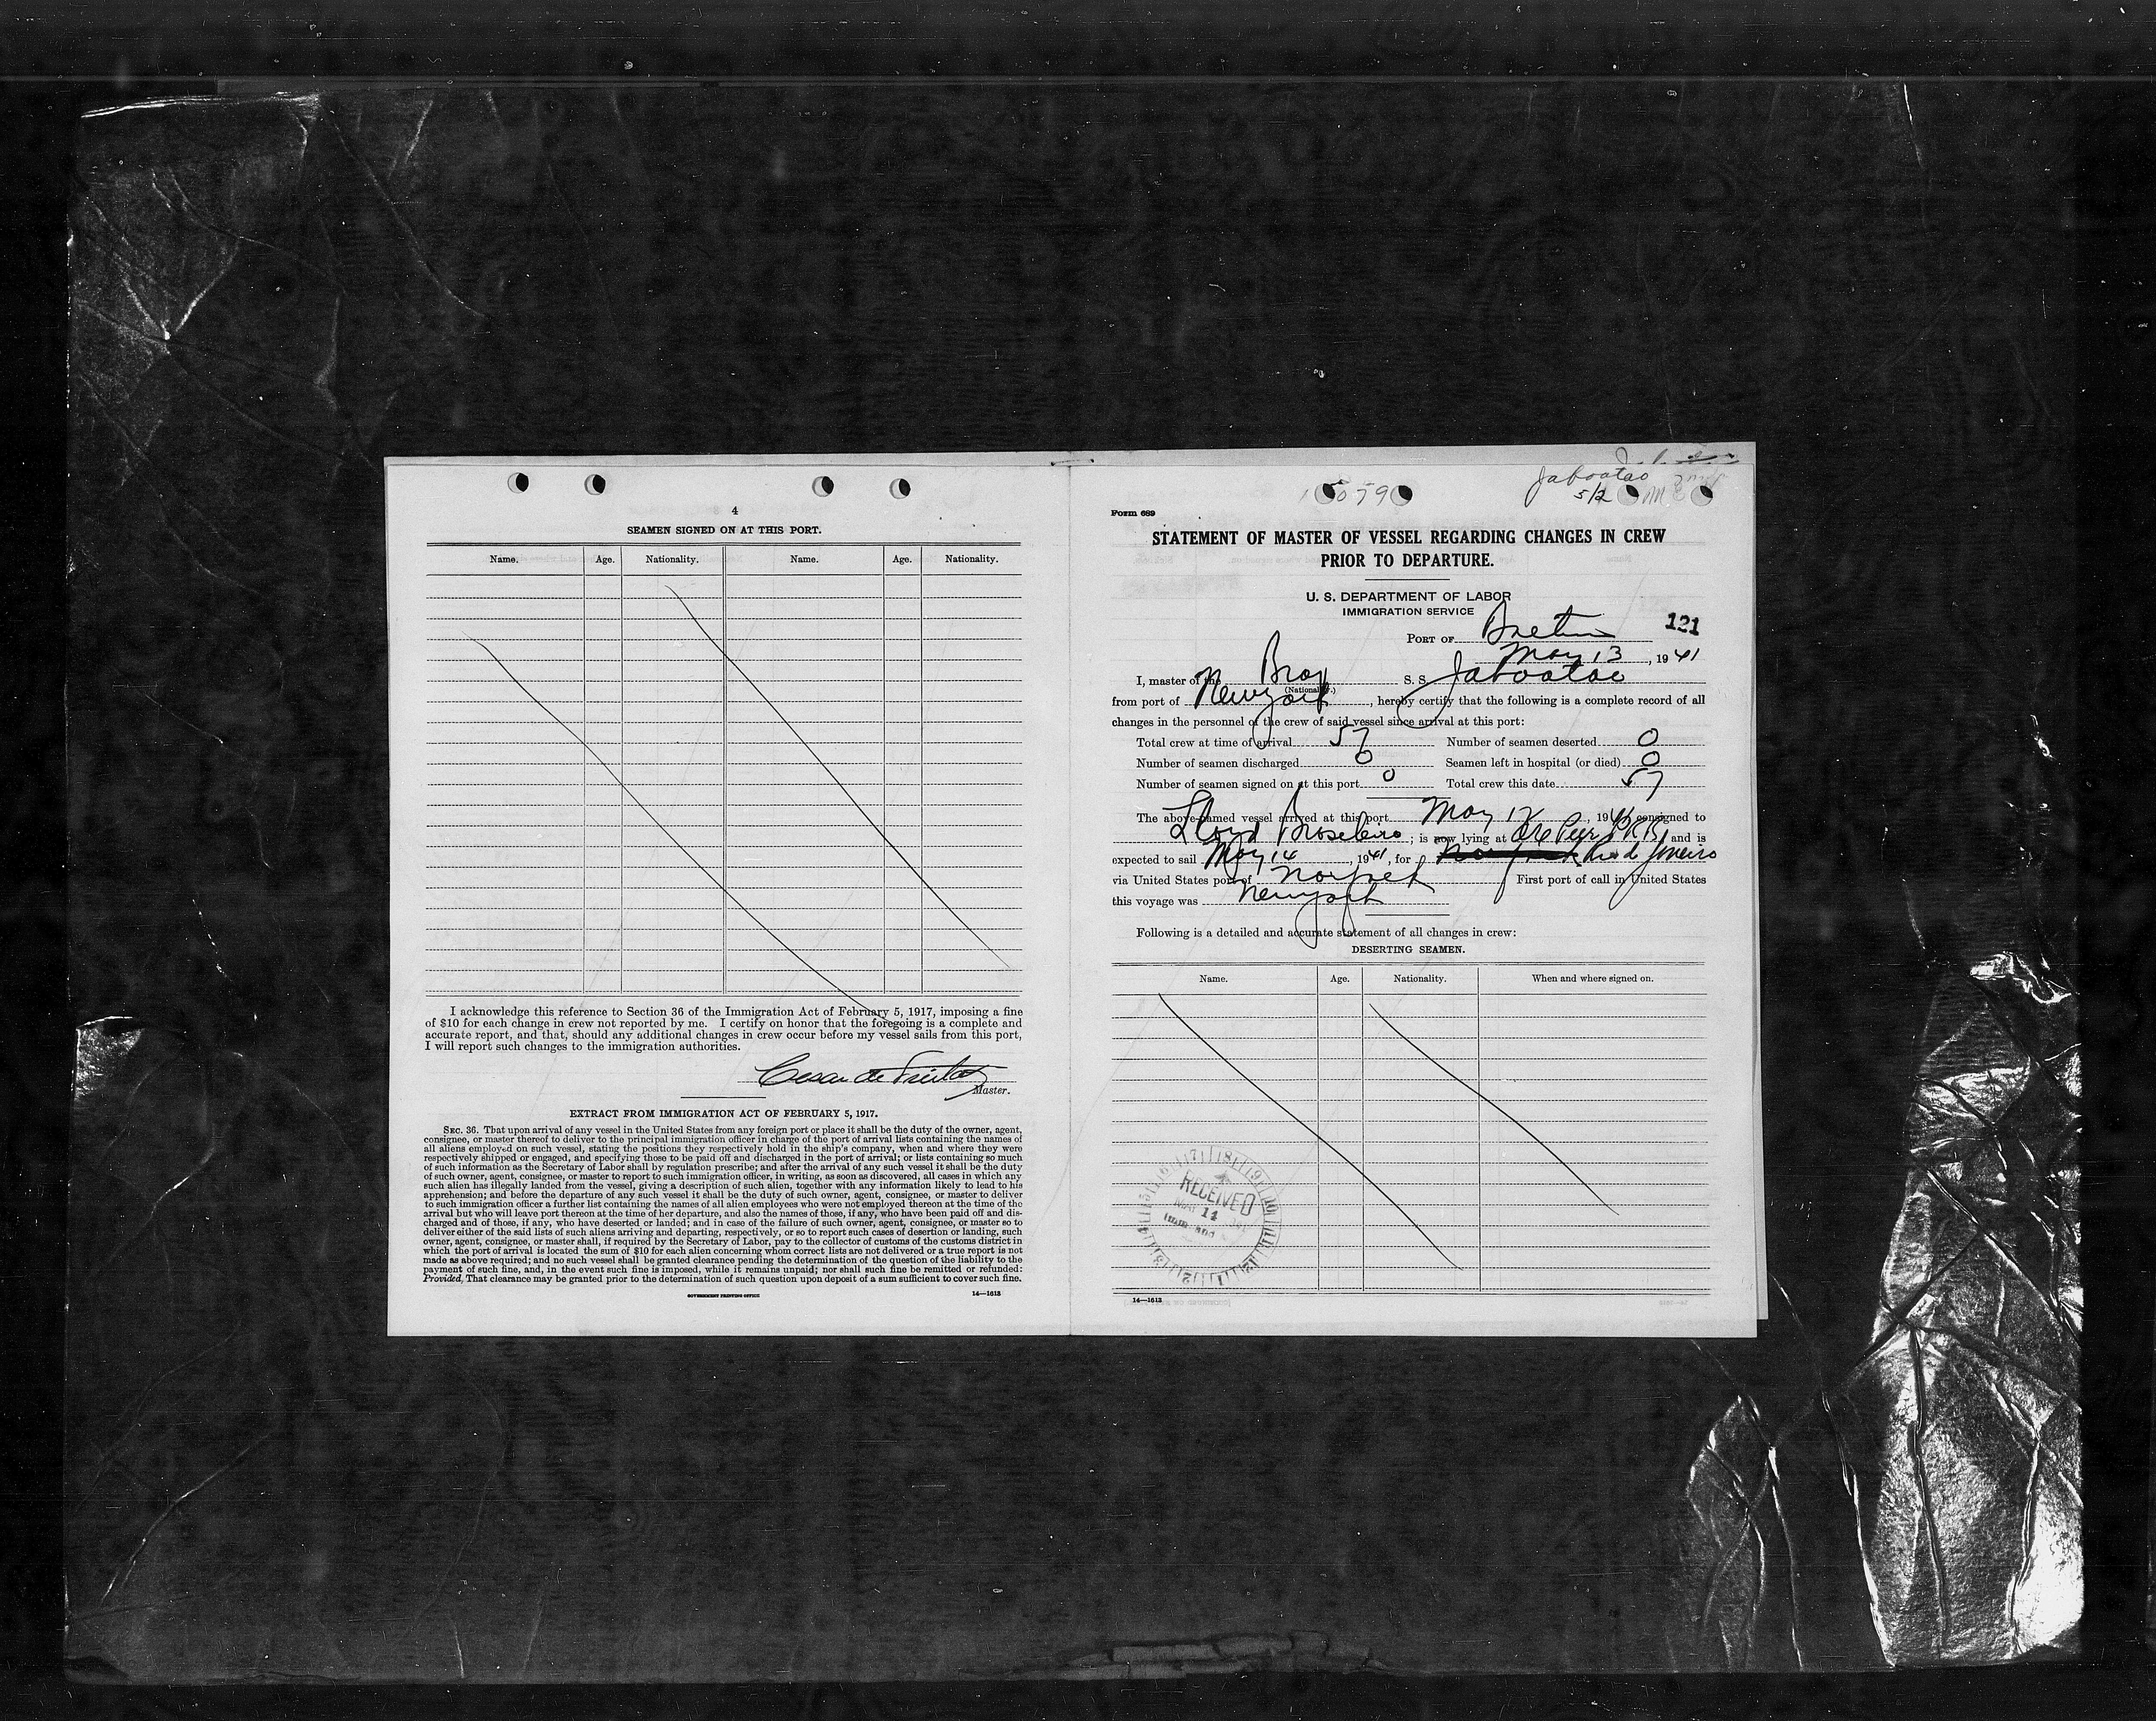 4
SEAMEN SIGNED ON AT THIS PORT.
Name. Age. Nationality. Name. Age. Nationality.
I acknowledge this reference to Section 36 of the Immigration Act of February 5, 1917, imposing a fine
of $10 for each change in crew not reported by me. I certify on honor that the foregoing is a complete and
accurate report, and that, should any additional changes in crew occur before my vessel sails from this port,
I will report such changes to the immigration authorities.
Cesar de Freitas
Master.
EXTRACT FROM IMMIGRATION ACT OF FEBRUARY 5, 1917.
SEC. 36. That upon arrival of any vessel in the United States from any foreign port or place it shall be the duty of the owner, agent,
consignee, or master thereof to deliver to the principal immigration officer in charge of the port of arrival lists containing the names of
all aliens employed on such vessel, stating the positions they respectively hold in the ship's company, when and where they were
respectively shipped or engaged, and specifying those to be paid off and discharged in the port of arrival; or lists containing so much
of such information as the Secretary of Labor shall by regulation prescribe; and after the arrival of any such vessel it shall be the duty
of such owner, agent, consignee, or master to report to such immigration officer, in writing, as soon as discovered, all cases in which any
such alien has illegally landed from the vessel, giving a description of such alien, together with any information likely to lead to his
apprehension; and before the departure of any such vessel it shall be the duty of such owner, agent, consignee, or master to deliver
to such immigration officer a further list containing the names of all alien employees who were not employed thereon at the time of the
arrival but who will leave port thereon at the time of her departure, and also the names of those, if any, who have been paid off and dis-
charged and of those, if any, who have deserted or landed; and in case of the failure of such owner, agent, consignee, or master so to
deliver either of the said lists of such aliens arriving and departing, respectively, or so to report such cases of desertion or landing, such
owner, agent, consignee, or master shall, if required by the Secretary of Labor, pay to the collector of customs of the customs district in
which the port of arrival is located the sum of $10 for each alien concerning whom correct lists are not delivered or a true report is not
made as above required; and no such vessel shall be granted clearance pending the determination of the question of the liability to the
payment of such fine, and, in the event such fine is imposed, while it remains unpaid; nor shall such fine be remitted or refunded:
Provided, That clearance may be granted prior to the determination of such question upon deposit of a sum sufficient to cover such fine.
GOVERNMENT PRINTING OFFICE 14—1613
Jaboatao
5/2
Form 689
STATEMENT OF MASTER OF VESSEL REGARDING CHANGES IN CREW
PRIOR TO DEPARTURE.
U. S. DEPARTMENT OF LABOR
IMMIGRATION SERVICE
PORT OF 121
May 13, 1941
I, master of the Braz S. S. Jaboatao
(Nationality.)
from port of New york, hereby certify that the following is a complete record of all
changes in the personnel of the crew of said vessel since arrival at this port:
Total crew at time of arrival 57 Number of seamen deserted 0
Number of seamen discharged 0 Seamen left in hospital (or died) 0
Number of seamen signed on at this port 0 Total crew this date 57
The above-named vessel arrived at this port May 12, 1941 consigned to
Lloyd Brasileiro; is now lying at Ore Pier P.R.R. and is
expected to sail May 14, 1941, for Rio de Janeiro
via United States port of Norfolk First port of call in United States
this voyage was New york
Following is a detailed and accurate statement of all changes in crew:
DESERTING SEAMEN.
Name. Age. Nationality. When and where signed on.
RECEIVED
MAY 14
14—1613